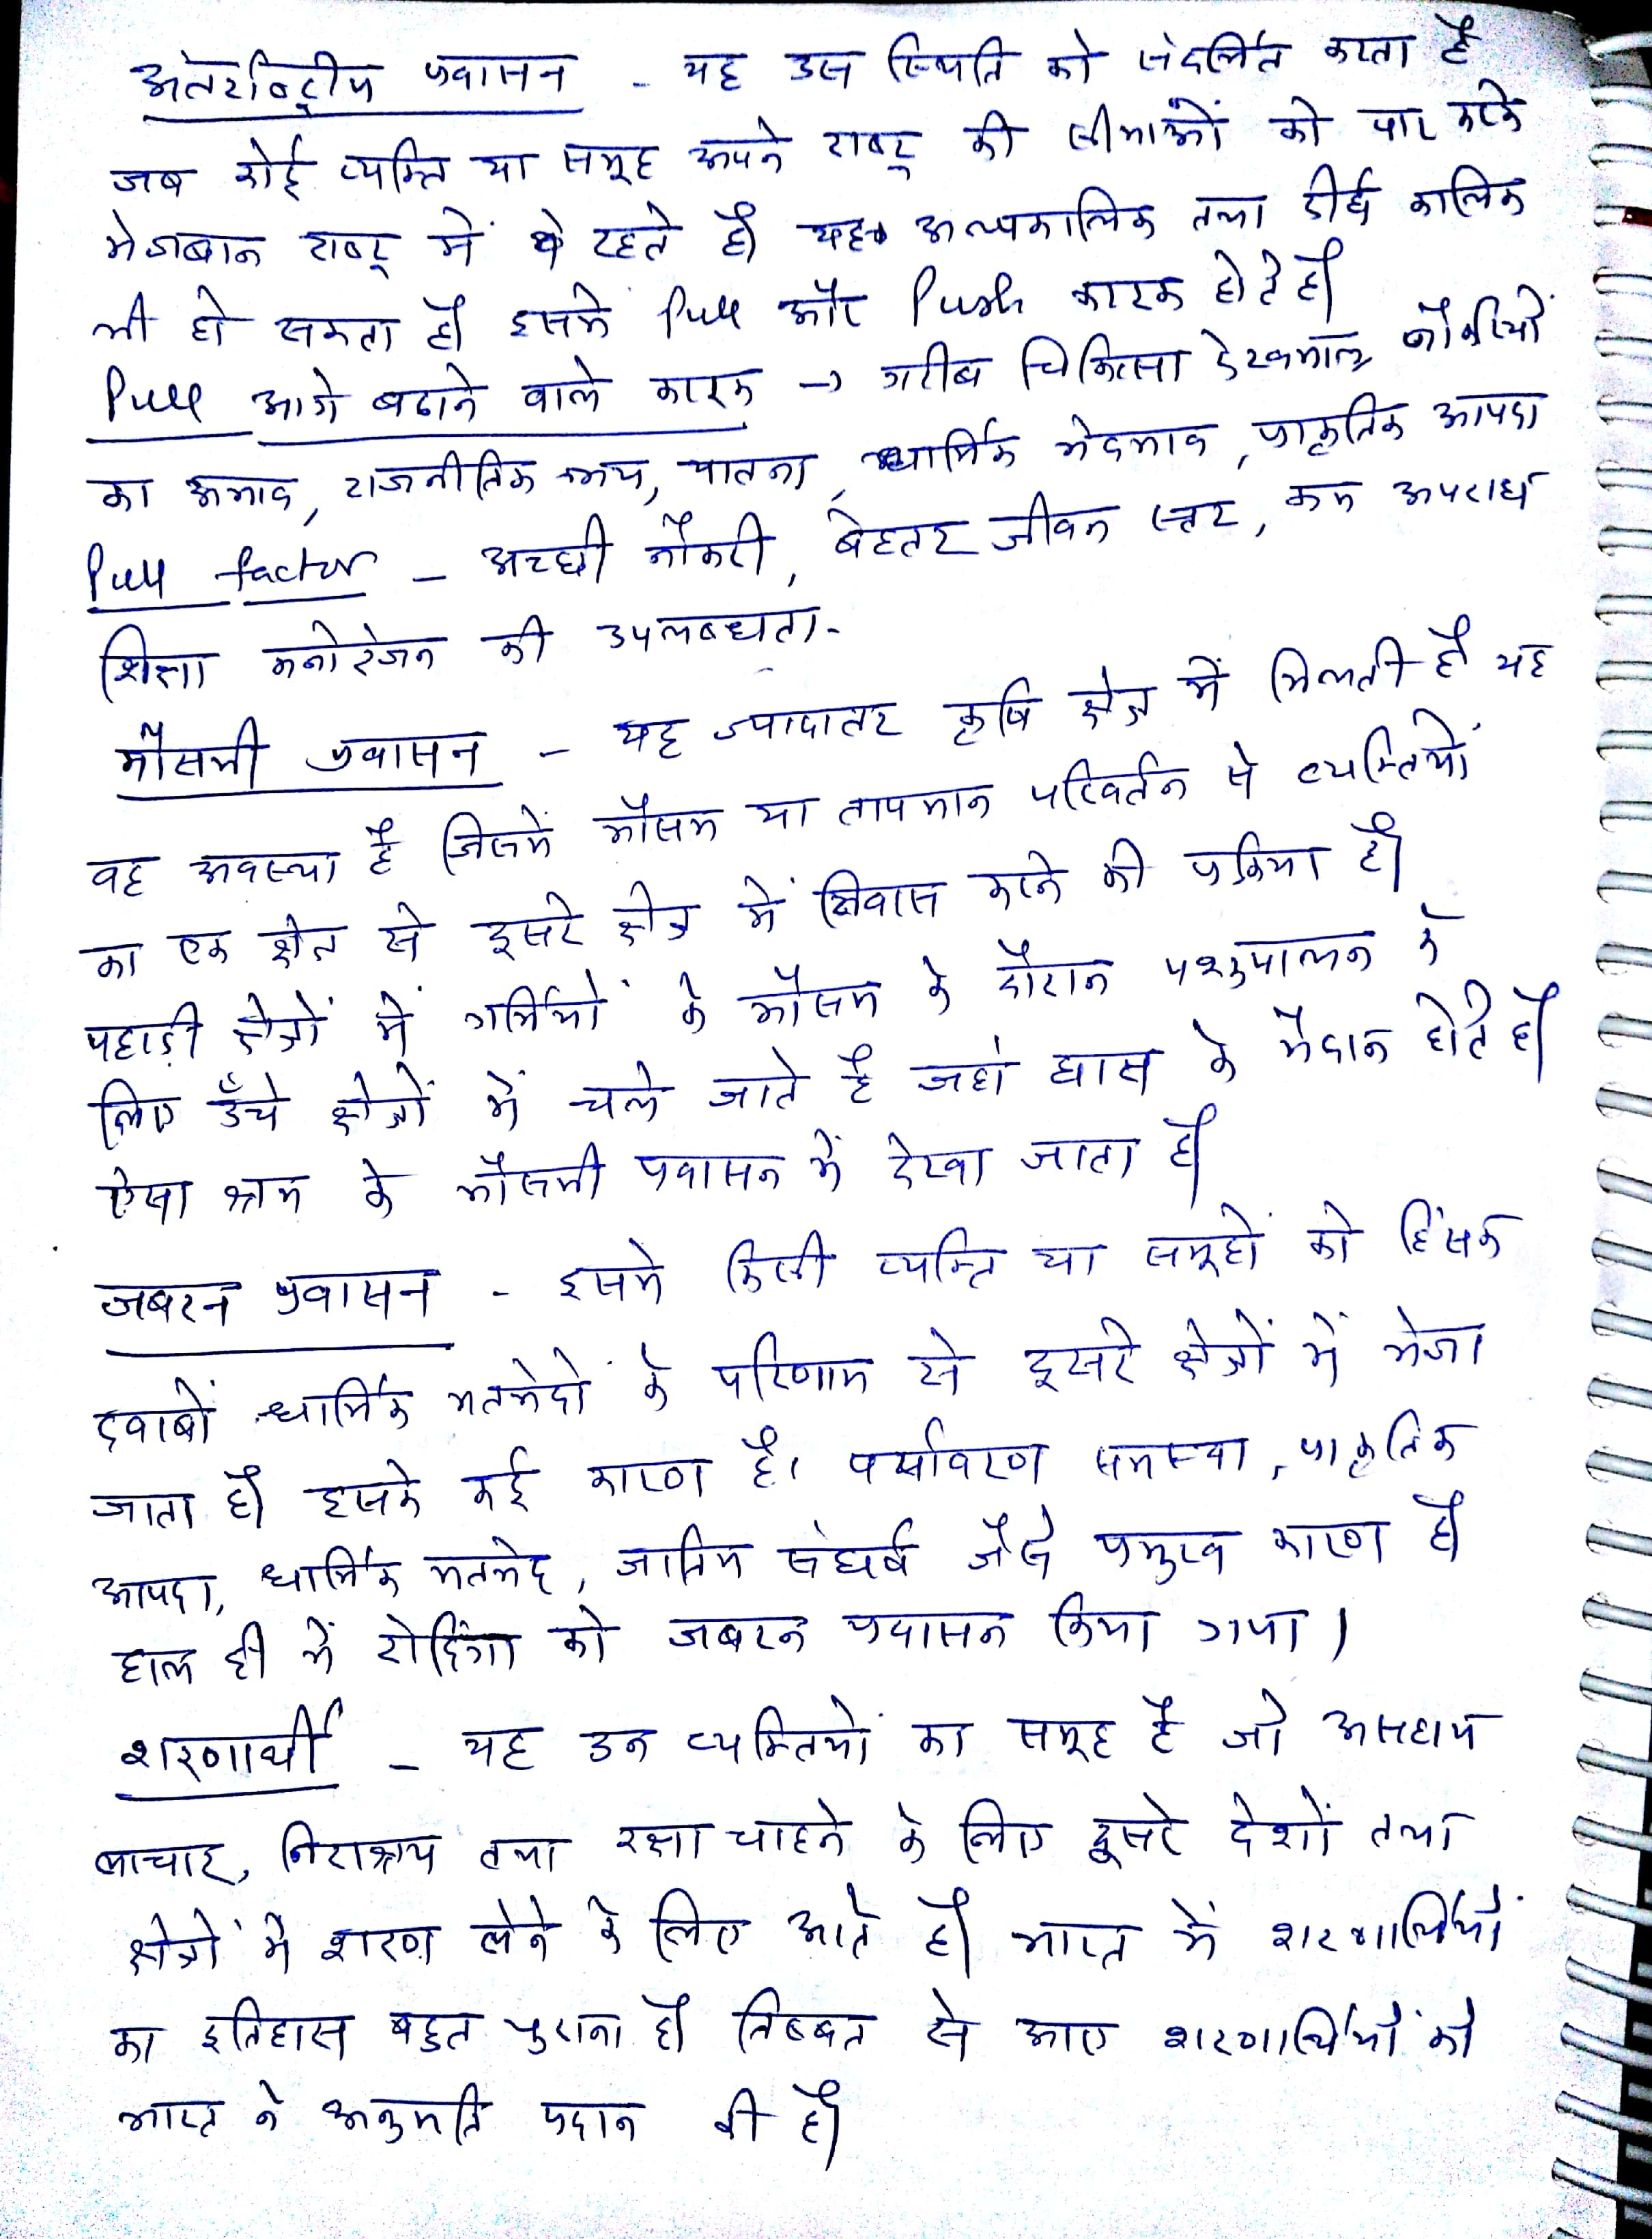 अंतर्राष्ट्रीय प्रवासन - यह उस स्थिति को संदर्भित करता है
जब कोई व्यक्ति या समूह अपने राष्ट्र की सीमाओं को पार करके
मेजबान राष्ट्र में रहते है। यह अल्पकालिक तथा दीर्घ कालिक
भी हो सकता है। इसमे Pull और Push कारक होते है।
Pull आगे बढाने वाले कारक → गरीब चिकित्सा देखभाल, नौकरियों
का अभाव, राजनीतिक भय, यातना, धार्मिक भेदभाव, प्राकृतिक आपदा
Pull factor - अच्छी नौकरी, बेहतर जीवन स्तर, कम अपराध
शिक्षा मनोरंजन की उपलब्धता.
मौसमी प्रवासन - यह ज्यादातर कृषि क्षेत्र में मिलती है यह
वह अवस्था है जिसमें मौसम या तापमान परिवर्तन से व्यक्तियों
का एक क्षेत्र से दूसरे क्षेत्र में निवास करने की प्रक्रिया है।
पहाड़ी क्षेत्रों में गर्मियों के मौसम के दौरान पशुपालन के
लिए ऊँचे क्षेत्रों में चले जाते है जहां घास के मैदान होते है।
ऐसा श्रम के मौसमी प्रवासन में देखा जाता है।
जबरन प्रवासन - इसमे किसी व्यक्ति या समूहों को हिंसक
दवाबों धार्मिक मतभेदों के परिणाम से दूसरे क्षेत्रों में भेजा
जाता है। इसके कई कारण है। पर्यावरण समस्या, प्राकृतिक
आपदा, धार्मिक मतभेद, जातिय संघर्ष जैसे प्रमुख कारण है।
हाल ही में रोहिंगा को जबरन प्रवासन किया गया।
शरणार्थी - यह उन व्यक्तियों का समूह है जो असहाय
लाचार, निराश्रय तथा रक्षा चाहने के लिए दूसरे देशों तथा
क्षेत्रों में शरण लेने के लिए आते है। भारत में शरणार्थियों
का इतिहास बहुत पुराना है। तिब्बत से आए शरणार्थियों को
भारत ने अनुमति प्रदान की है।